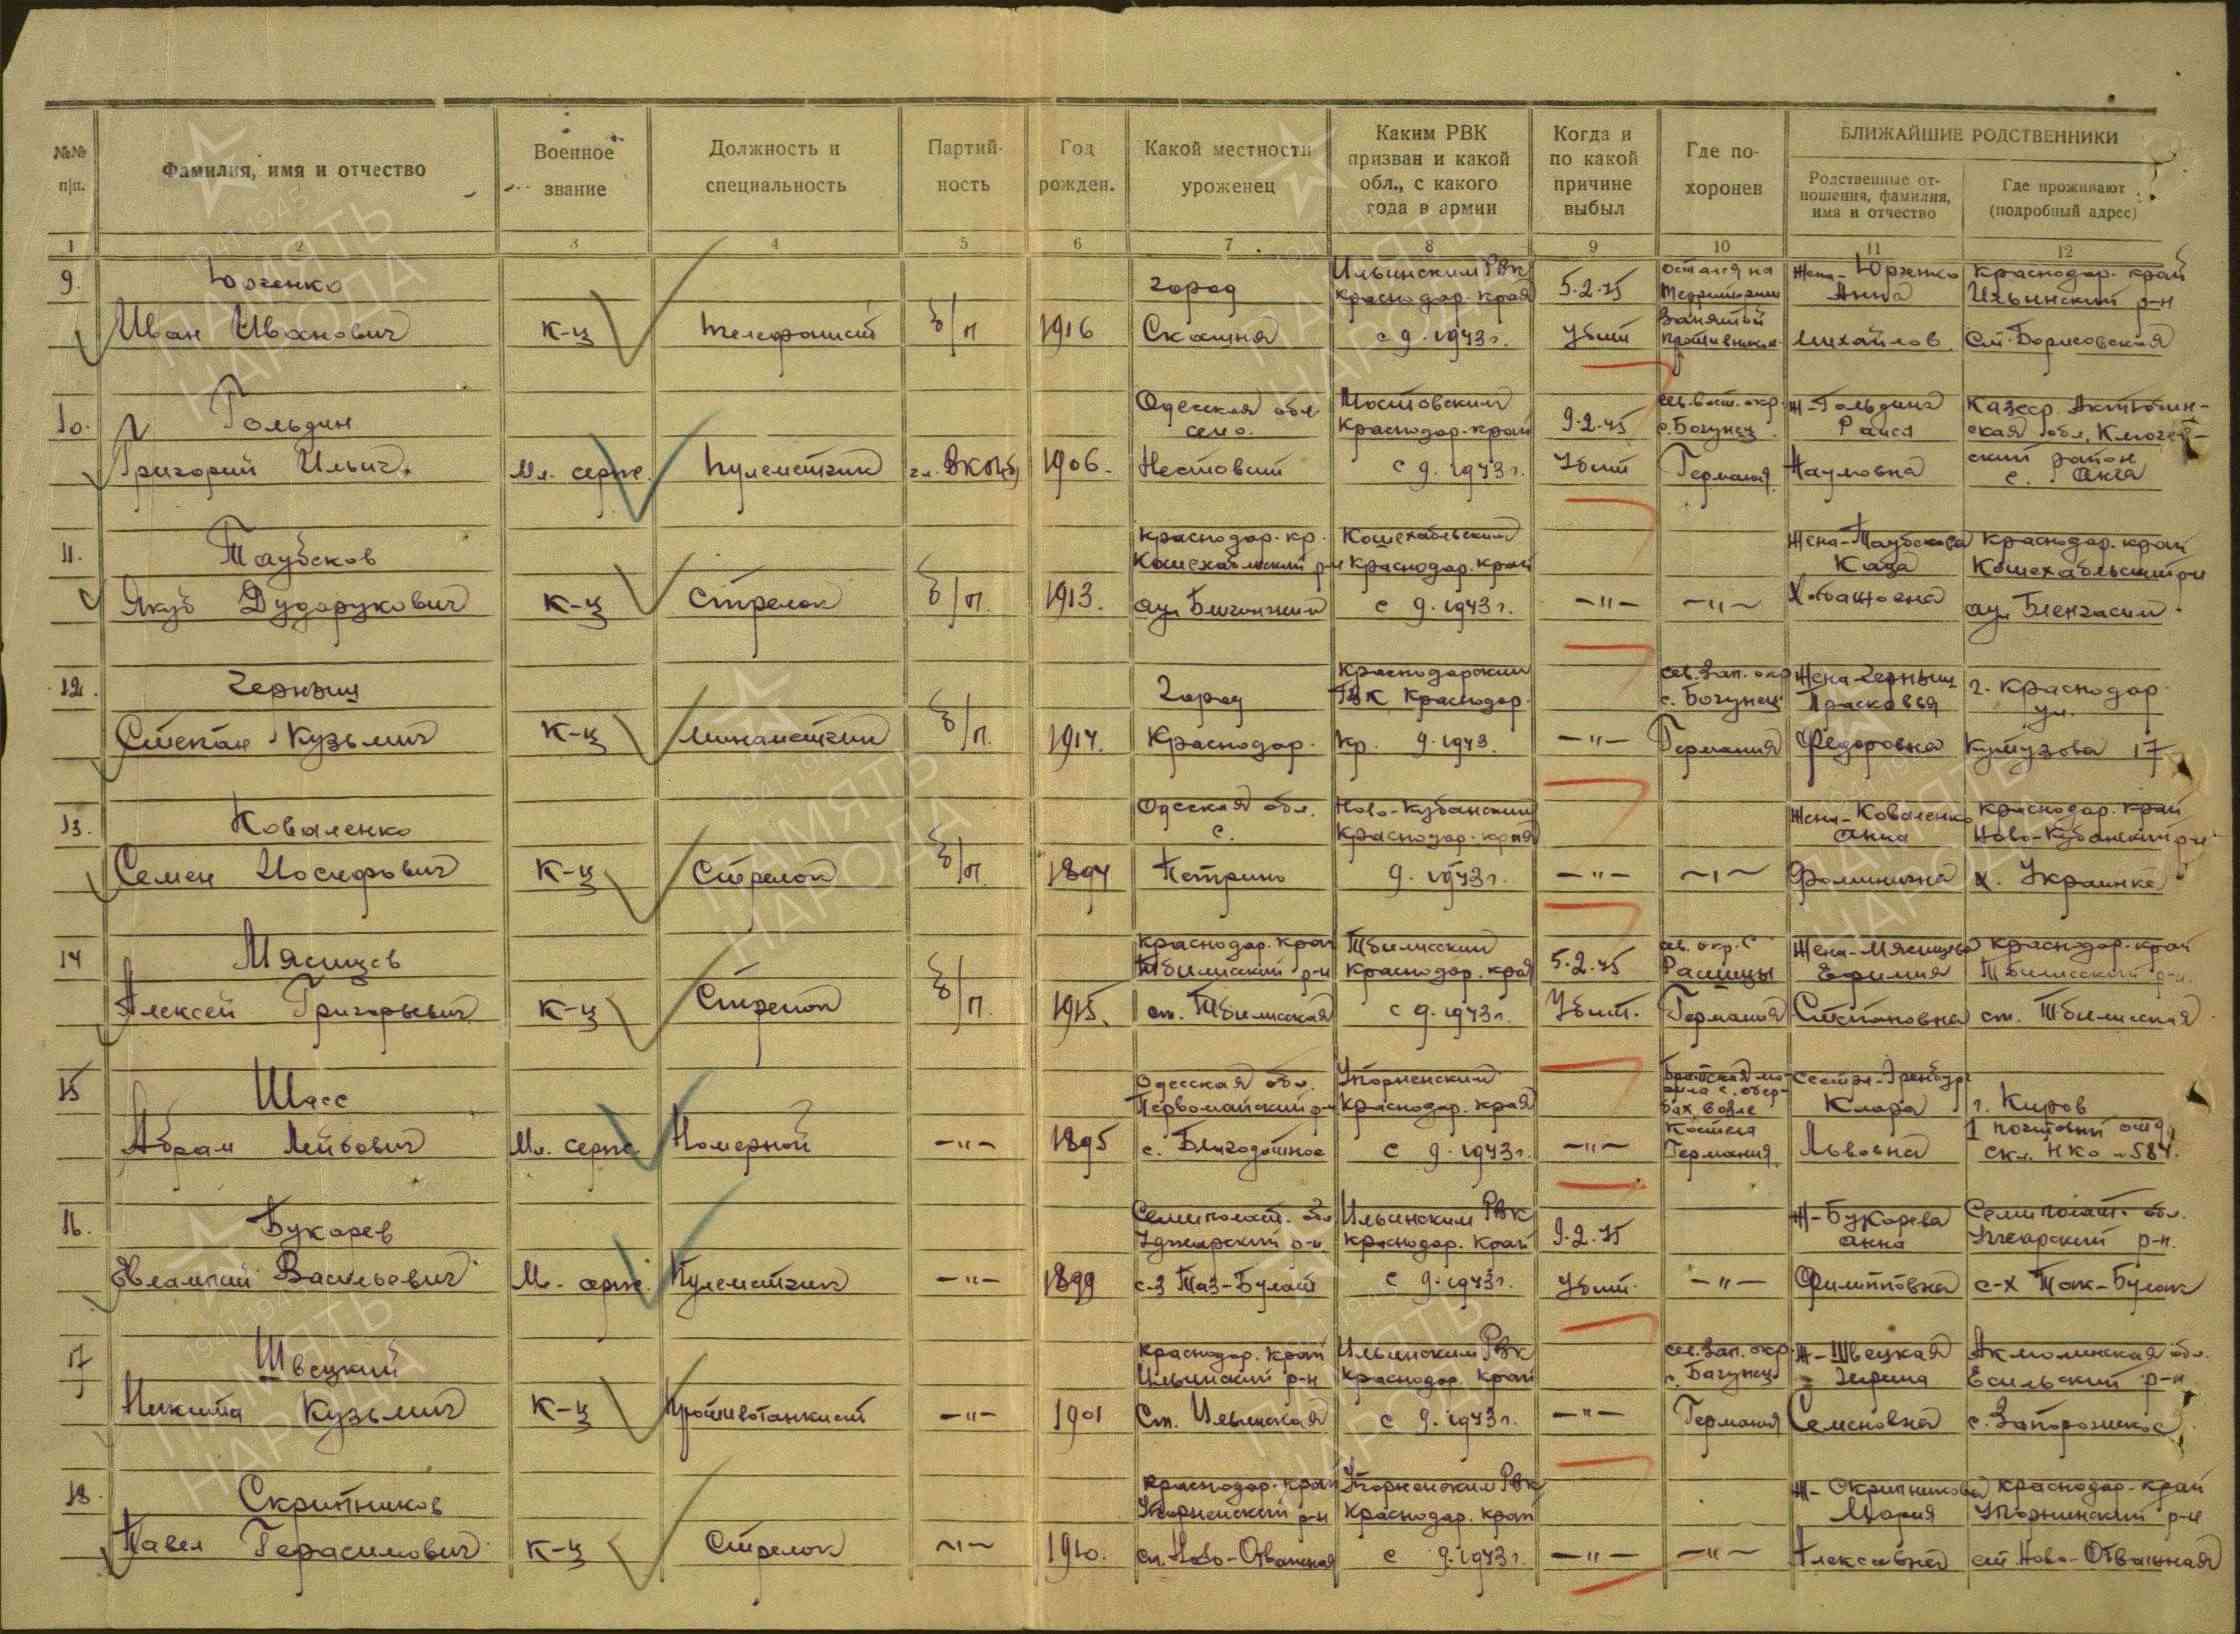 №№ п/п.
Фамилия, имя и отчество
Военное звание
Должность и специальность
Партий-ность
Год рожден.
Какой местности уроженец
Каким РВК призван и какой обл., с какого года в армии
Когда и по какой причине выбыл
Где по-хоронен
БЛИЖАЙШИЕ РОДСТВЕННИКИ
Родственные от-ношения, фамилия, имя и отчество
Где проживают (подробный адрес)
1 2 3 4 5 6 7 8 9 10 11 12
9. Юрченко
Ильинским РВК
Краснодар. края
5.2.45
остался на
территории
занятый
противника
Жена - Юрченко
Анна
Краснодар. край
Ильинский р-н
Иван Иванович к-ц телефонист б/п 1916
город
с 9. 1943 г. убит
ст. Борисовская
10. Гольдин
Одесская обл
село.
Мостовским
Краснодар. край
9.2.45
сев. вост. окр.
с. Богунец
Ж-Гольдина
Раиса
Казсср. Актюбин-
ская обл. Ключев-
ский район
Григорий Ильич. Мл. серж. пулеметчик 1906. с 9. 1943 г. убит Германия Наумовна
11. Таубеков
Краснодар. кр.
Кошехабльский р-н
Кошехабльский
Краснодар. край
Жена-Таубекова
Краснодар. край
Кошехабльский р-н
Якуб к-ц стрелок б/п. 1913. аул с 9. 1943 г. -"- -"- аул
12. Черныш
город
Краснодарским
ГВК Краснодар.
сев. зап. окр
с. Богунец
Жена-Черныш
Прасковья
г. Краснодар
ул.
Степан Кузьмич к-ц минометчик б/п. 1914. Краснодар. кр. 9. 1943. -"- Германия Федоровна Кутузова 17
13. Коваленко
Одесская обл.
с.
Ново-Кубанский
Краснодар. края
Жена-Коваленко
Анна
Краснодар. край
Ново-Кубанский р-н
Семен Иосифович к-ц Стрелок б/п. 1894 9. 1943 г. -"- -"- Фоминична х. Украинка
14 Мясищев
Краснодар. край
Тбилисский р-н
Тбилисский
Краснодар. края
5.2.45
сев. окр. с
Жена-Мясищева
Краснодар. край
Тбилисский р-н.
Алексей Григорьевич к-ц Стрелок б/п. 1915. ст. Тбилисская с 9. 1943 г. Убит. Германия Степановна ст. Тбилисская
15 Шасс
Одесская обл.
Первомайский р-н
Упорненским
Краснодар. края
Братская мо-
гила с. обер-
бах возле
Клара
г. Киров
1 почтовый отд,
Абрам Лейбович Мл. серж. Номерной -"- 1895 с. Благодатное с 9. 1943 г. -"- Германия Львовна скл. НКО - 584.
16. Букарев
Семипалат. обл
Ильинским РВК
Краснодар. край
9.2.45
Ж-Букарева
Анна
Семипалат. обл.
р-н.
Евлампий Васильевич Мл. серж. Пулеметчик -"- 1899 с 9. 1943 г. Убит. -"- Филипповна
17 Швецкий
Краснодар. край
Ильинский р-н
Ильинским РВК
Краснодар. край
сев. зап. окр.
с. Богунец
Ж-Швецкая
Акмолинская обл.
Есильский р-н
Никита Кузьмич к-ц Противотанкист -"- 1901 Ст. Ильинская с 9. 1943 г. -"- Германия Семеновна с. Запорожское
18. Скрипников
Краснодар. край
Упорненский р-н
Упорненским РВК
Краснодар. край
Ж-Скрипникова
Мария
Краснодар. край
Упорнинский р-н
Павел Герасимович к-ц Стрелок -"- 1910. с 9. 1943 г. -"- -"- Алексеевна
1941-1945
ПАМЯТЬ
НАРОДА